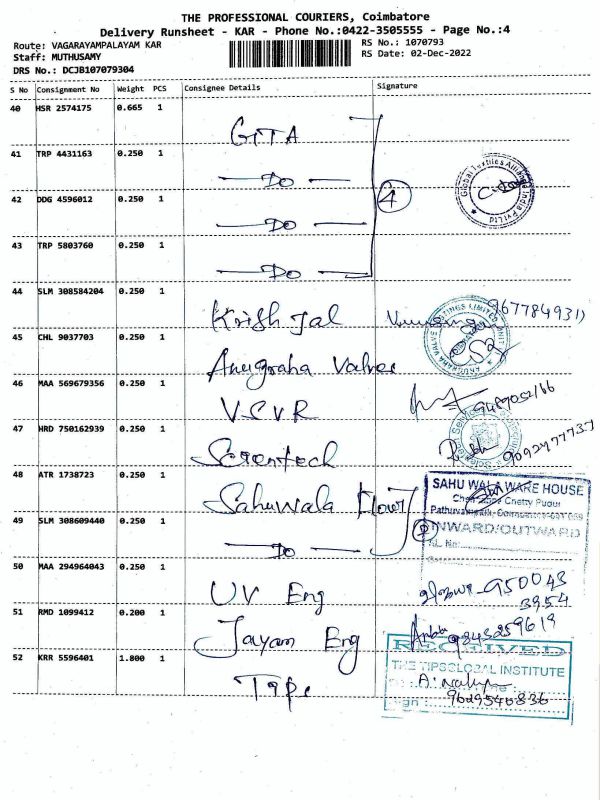 THE PROFESSIONAL COURIERS, Coimbatore
Delivery Runsheet - KAR - Phone No.:0422-3505555 - Page No.:4
Route: VAGARAYAMPALAYAM KAR
RS No.: 1070793
Staff: MUTHUSAMY
RS Date: 02-Dec-2022
DRS No.: DCJB107079304
S No Consignment No Weight PCS Consignee Details Signature
40 HSR 2574175 0.665 1
GTTA
41 TRP 4431163 0.250 1
Do
4
Global Textiles Alliance India Pvt Ltd
42 DDG 4596012 0.250 1
Do
43 TRP 5803760 0.250 1
Do
44 SLM 308584204 0.250 1
Krish Jal
9677849311
45 CHL 9037703 0.250 1
Anugraha Valves
46 MAA 569679356 0.250 1
VSVR
47 HRD 750162939 0.250 1
Scientech
9092477737
48 ATR 1738723 0.250 1
Sahuwala Flour
SAHU WALA WARE HOUSE
Chetty Pudur
49 SLM 308609440 0.250 1
Do
2
INWARD/OUTWARD
SL. No:
50 MAA 294964043 0.250 1
UV Eng
950043
3954
51 RMD 1099412 0.200 1
Jayam Eng
Anbu
9843259619
52 KRR 5596401 1.800 1
Tips
RECEIVED
THE TIPSGLOBAL INSTITUTE
9629546836
Sign :